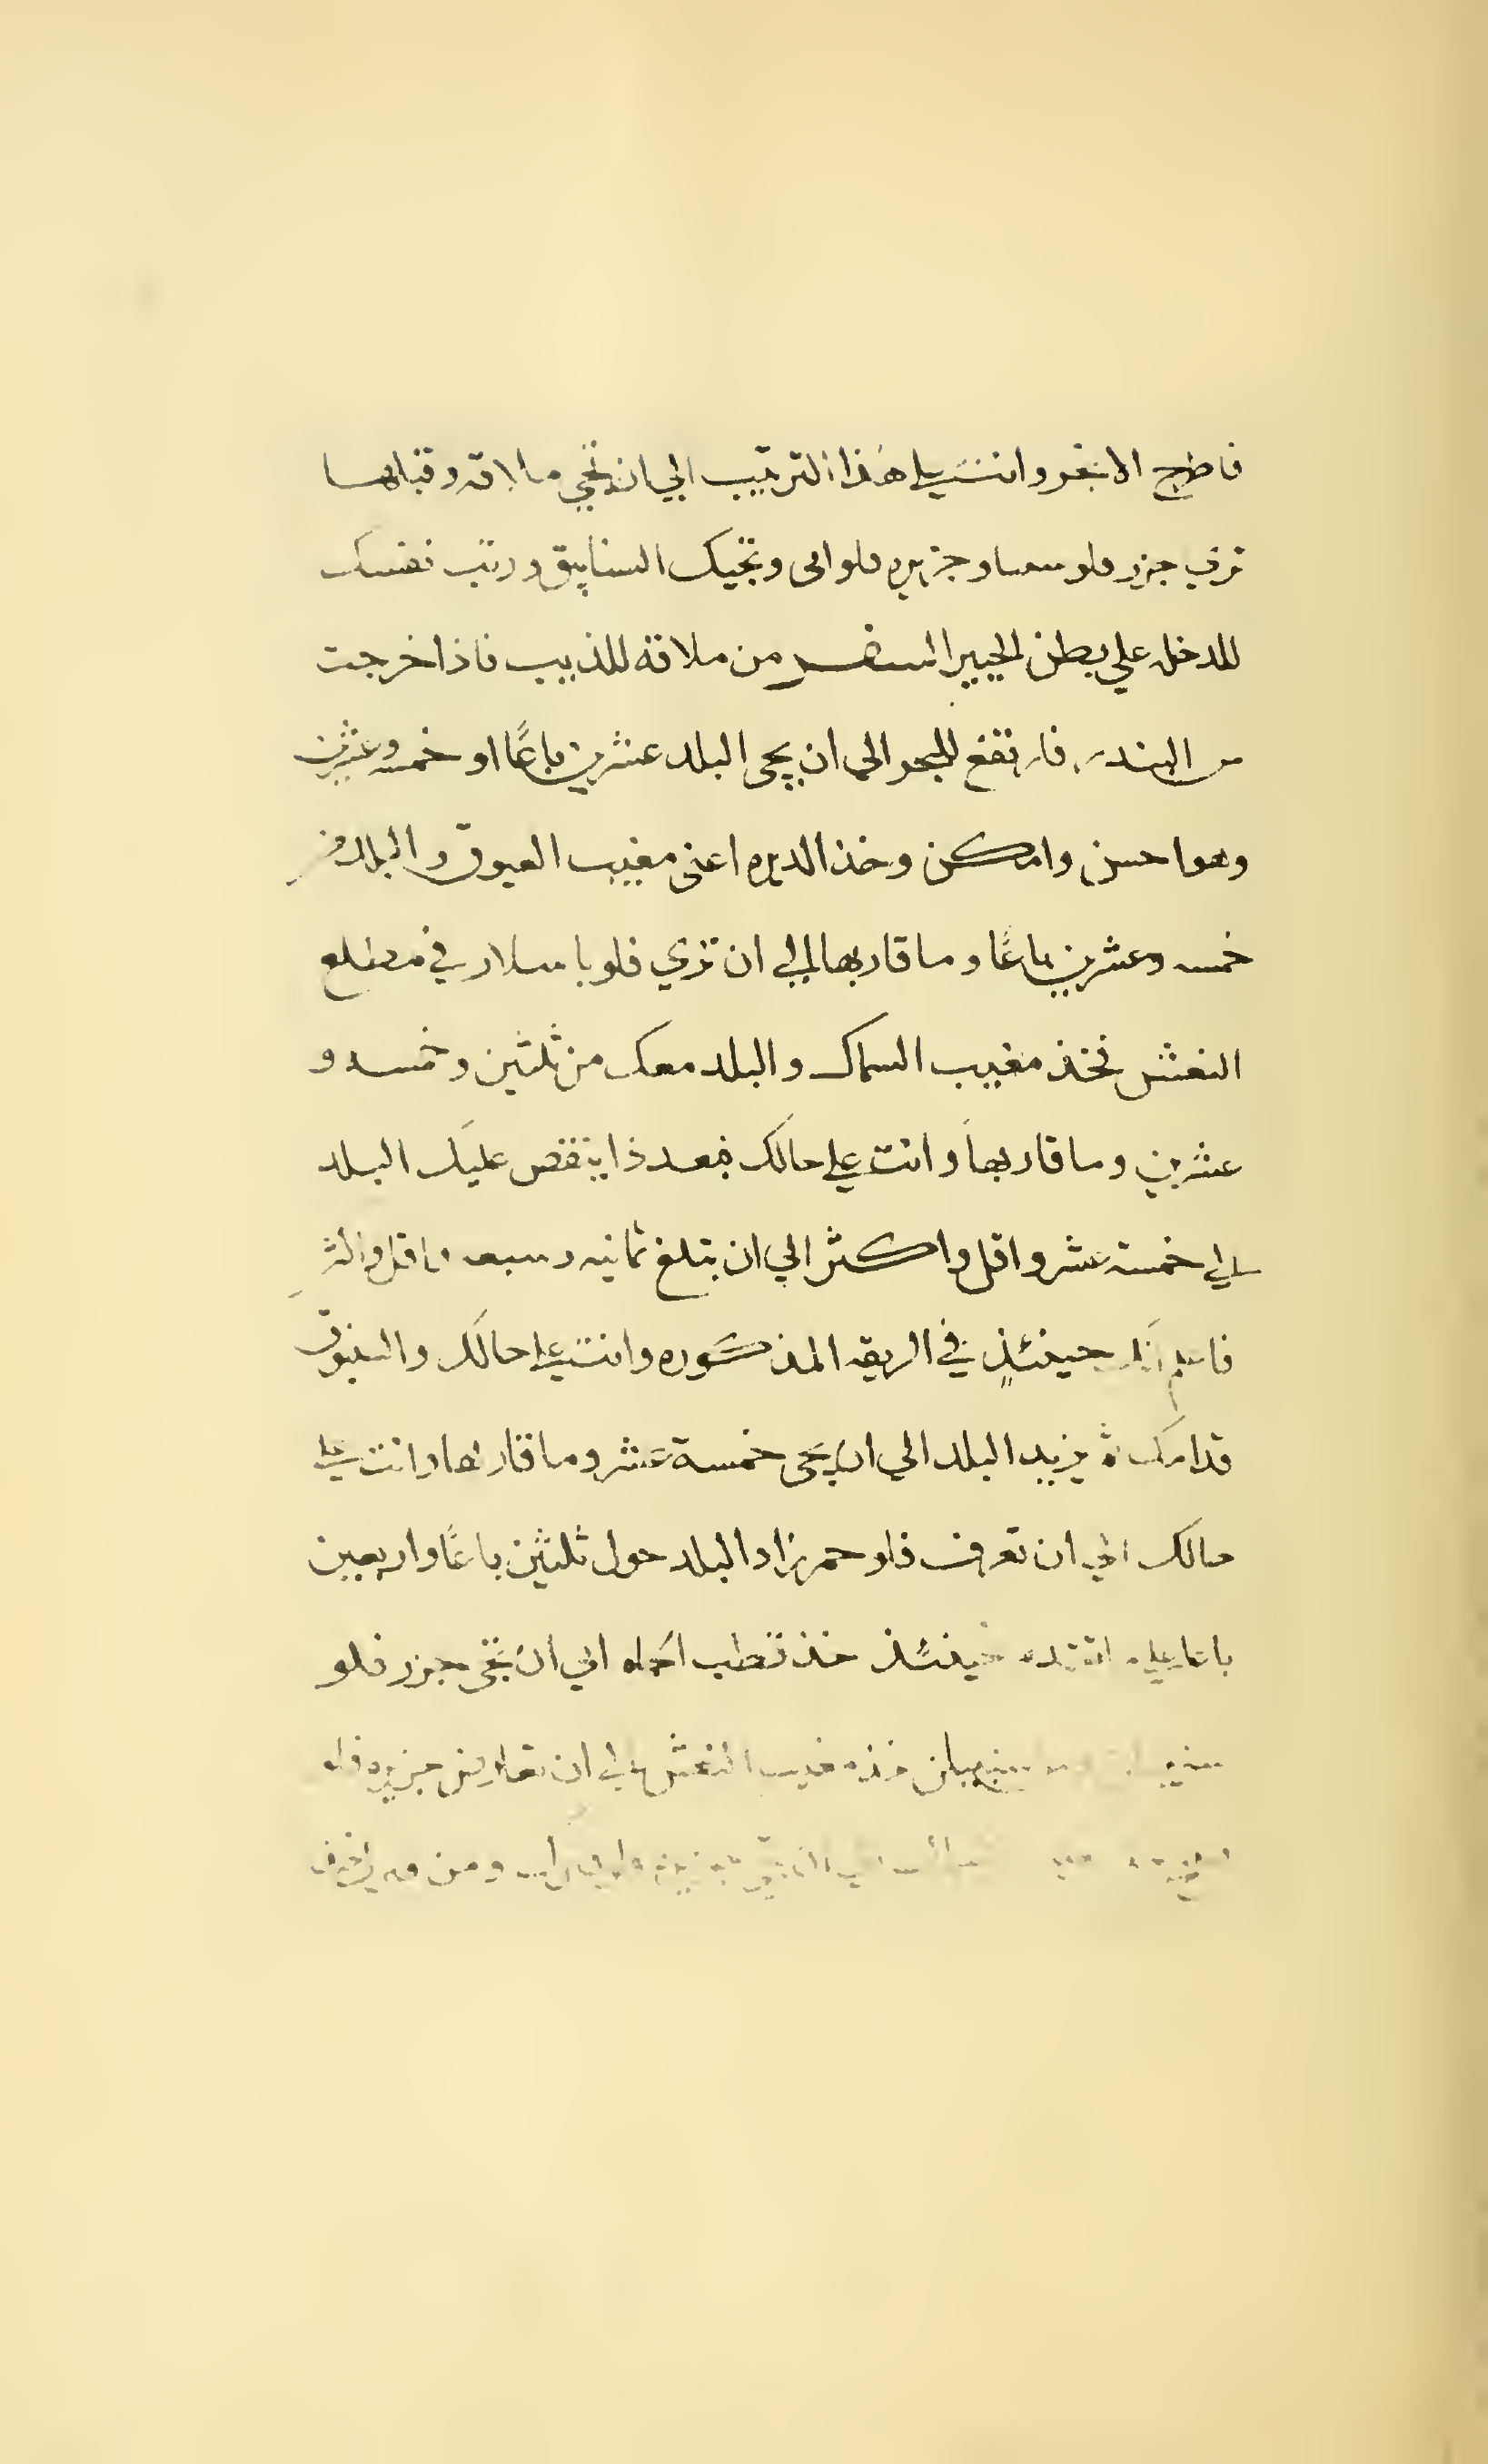 فاطرح الانجر وانت علي هذا الترتيب الي ان تجي ملاقه وقبالها
تري جزر فلو سمسا وجزيره فلوالى وتجيك السنابيق ورتب نفسك
للدخل علي بطن الجبير من ملاقه للذبيب فاذا خرجت
من البندر فارتفع للبحر الى ان يجى البلد عشرين باعًا او خمسه وعشرين
وهوا حسن وامكن وخذ الديره اعنى مغيب العيوق والبلد من
خمسه وعشرين باعًا وما قاربها الي ان تري فلو باسلار في مطلع
النعش فخذ مغيب السماك والبلد معك من ثلثين وخمسه و
عشرين وما قاربها وانت علي حالك فبعد ذا ينقص عليك البلد
الي خمسة عشر واقل واكثر الي ان يبلغ ثمانيه وسبعه فما قل واكثر
فاعلم انك حينئذٍ في الريقه المذكوره وانت علي حالك والعيوق
قدامك ثم يزيد البلد الي ان يجى خمسة عشر وما قاربها وانت علي
حالك الي ان تعرف فلو حمر زاد البلد حول ثلثين باعًا واربعين
باعا حينئذ خذ قطب الجاه الي ان تجى جزر فلو
سنبيلن خذ مغيب النعش الي ان تعارض جزيره فلو
ومن